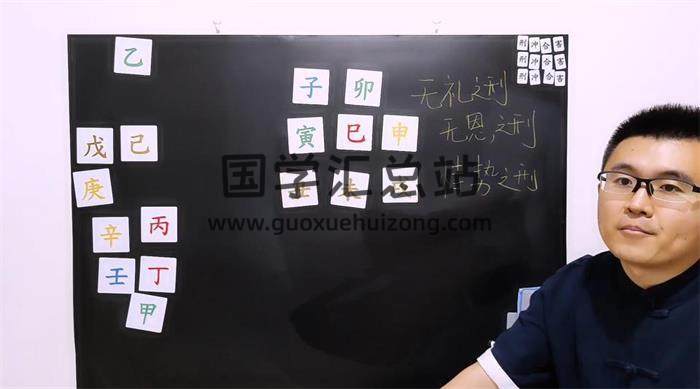 乙
刑冲合害
刑冲合害
刑冲合害
子 卯 无礼之刑
戊 己
寅 巳 申 无恩之刑
国学汇总站
势之刑
庚
www.guoxuehuizong.com
辛 丙
壬 丁
甲